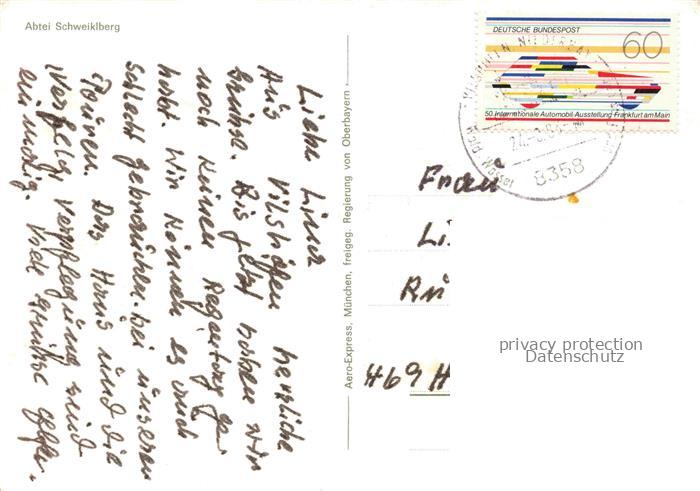 Abtei Schweiklberg
Liebe Lina
Aus Vilshofen herzliche
Grüße. Bis jetzt haben wir
noch keinen Regentag ge
habt. Wir können es auch
schlecht gebrauchen bei unseren
Touren. Das Haus und die
Verpflegung sind
einmalig. Viele Grüße
Aero-Express, München, freigeg. Regierung von Oberbayern
DEUTSCHE BUNDESPOST
60
50. Internationale Automobil-Ausstellung Frankfurt am Main
8358
Frau
Li
469 H
privacy protection
Datenschutz